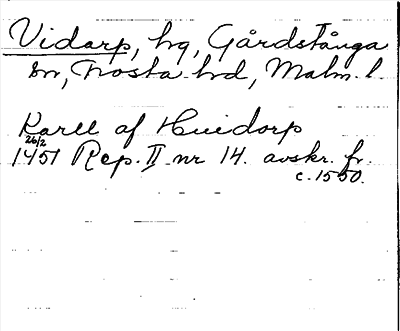 Vidarp, hg, Gårdstånga
sn, Frosta hd, Malm. l.
Karll af Huidorp
26/2
1451 Rep. II nr 14. avskr. fr.
c. 1550.